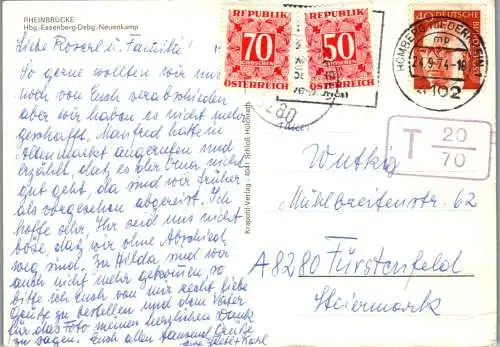 RHEINBRÜCKE
Hbg.-Essenberg-Dsbg.-Neuenkamp
Liebe Roserl u. Familie!
So gerne wollten wir uns
noch von Euch verabschieden
aber wir haben es nicht mehr
geschafft. Manfred hatte in
Altenmarkt angerufen und
erzählt, daß es der Oma nicht
gut geht, da sind wir früher
als vorgesehen abgereist. Ich
hoffe sehr, Ihr seid uns nicht
böse, daß wir ohne Abschied
weg sind. Zu Hilda sind wir
auch nicht mehr gekommen, so
bitte ich Euch von mir recht liebe
Grüße zu bestellen und dem Vater
für das Foto meinen herzlichen Dank
zu sagen. Euch allen tausend Grüße
Eure Karl
Krapohl-Verlag · 4041 Schloß Hülchrath
REPUBLIK
70
GROSCHEN
ÖSTERREICH
REPUBLIK
50
GROSCHEN
ÖSTERREICH
8280
DEUTSCHE BUNDESPOST
40
HOMBERG (NIEDERRHEIN) 1
mb
24.9.74-18
4102
T 20
70
Wutkig
Mühlbreitenstr. 62
A8280 Fürstenfeld
Steiermark